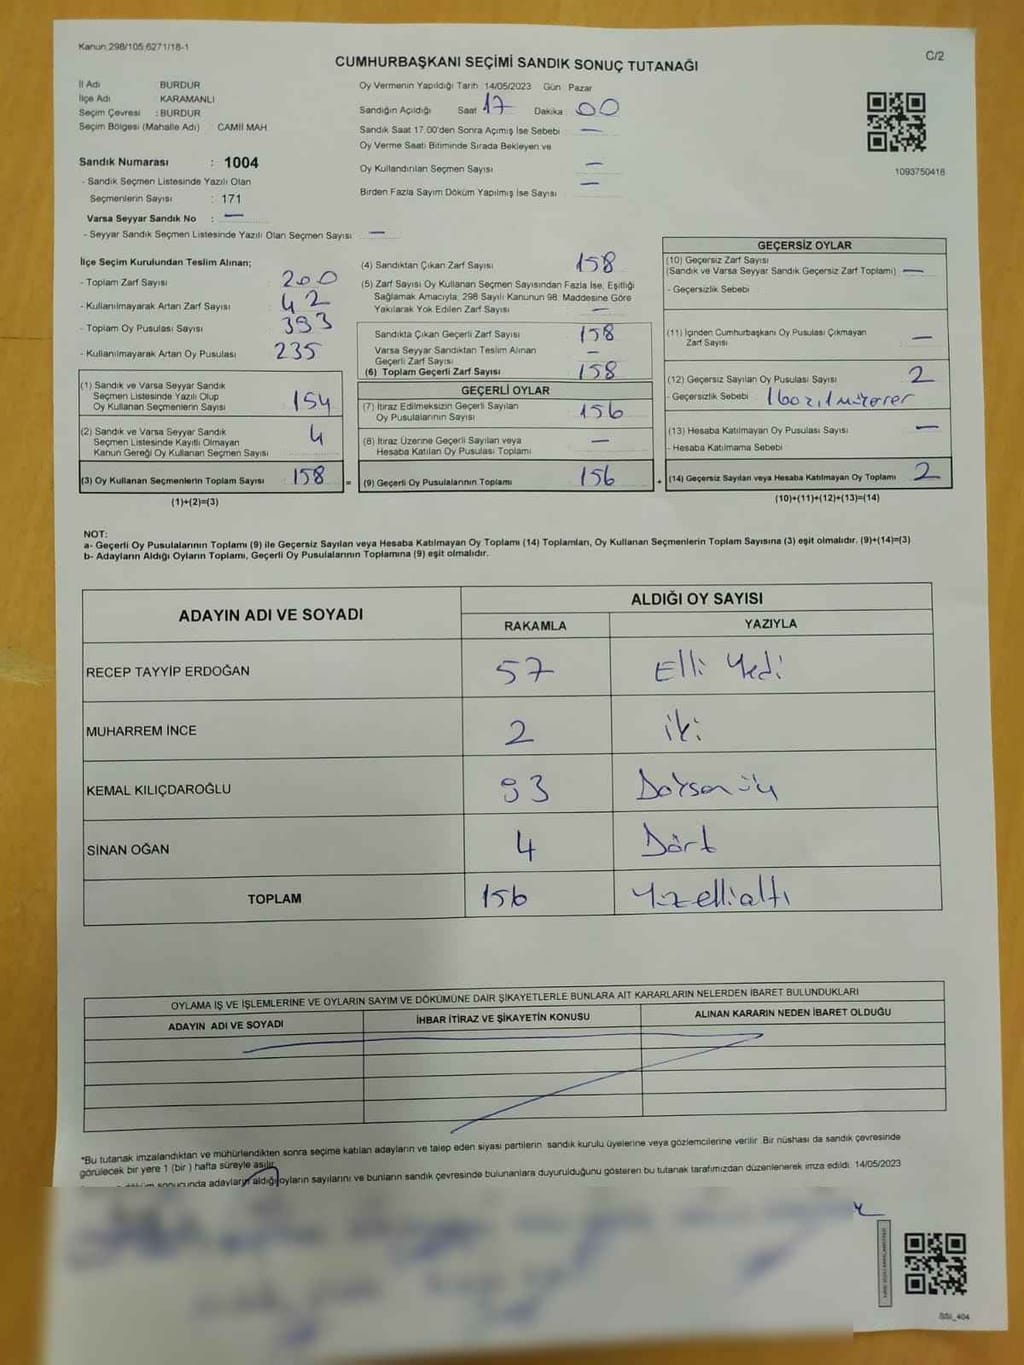 Kanun 298/105 6271/18-1
C/2
CUMHURBAŞKANI SEÇİMİ SANDIK SONUÇ TUTANAĞI
İl Adı BURDUR
İlçe Adı KARAMANLI
Seçim Çevresi : BURDUR
Seçim Bölgesi (Mahalle Adı) CAMİİ MAH
Sandık Numarası : 1004
- Sandık Seçmen Listesinde Yazılı Olan
Seçmenlerin Sayısı : 171
Varsa Seyyar Sandık No : —
- Seyyar Sandık Seçmen Listesinde Yazılı Olan Seçmen Sayısı —
Oy Vermenin Yapıldığı Tarih 14/05/2023 Gün Pazar
Sandığın Açıldığı Saat 17 Dakika 00
Sandık Saat 17.00'den Sonra Açımış İse Sebebi —
Oy Verme Saati Bitiminde Sırada Bekleyen ve
Oy Kullandırılan Seçmen Sayısı —
Birden Fazla Sayım Döküm Yapılmış İse Sayısı —
1093750418
İlçe Seçim Kurulundan Teslim Alınan;
- Toplam Zarf Sayısı 200
- Kullanılmayarak Artan Zarf Sayısı 42
- Toplam Oy Pusulası Sayısı 393
- Kullanılmayarak Artan Oy Pusulası 235
(1) Sandık ve Varsa Seyyar Sandık
Seçmen Listesinde Yazılı Olup
Oy Kullanan Seçmenlerin Sayısı 154
(2) Sandık ve Varsa Seyyar Sandık
Seçmen Listesinde Kayıtlı Olmayan
Kanun Gereği Oy Kullanan Seçmen Sayısı 4
(3) Oy Kullanan Seçmenlerin Toplam Sayısı 158 =
(1)+(2)=(3)
(4) Sandıktan Çıkan Zarf Sayısı 158
(5) Zarf Sayısı Oy Kullanan Seçmen Sayısından Fazla İse, Eşitliği
Sağlamak Amacıyla; 298 Sayılı Kanunun 98. Maddesine Göre
Yakılarak Yok Edilen Zarf Sayısı —
Sandıkta Çıkan Geçerli Zarf Sayısı 158
Varsa Seyyar Sandıktan Teslim Alınan
Geçerli Zarf Sayısı —
(6) Toplam Geçerli Zarf Sayısı 158
GEÇERLİ OYLAR
(7) İtiraz Edilmeksizin Geçerli Sayılan
Oy Pusulalarının Sayısı 156
(8) İtiraz Üzerine Geçerli Sayılan veya
Hesaba Katılan Oy Pusulası Toplamı —
(9) Geçerli Oy Pusulalarının Toplamı 156 +
GEÇERSİZ OYLAR
(10) Geçersiz Zarf Sayısı
(Sandık ve Varsa Seyyar Sandık Geçersiz Zarf Toplamı) —
- Geçersizlik Sebebi
(11) İçinden Cumhurbaşkanı Oy Pusulası Çıkmayan
Zarf Sayısı —
(12) Geçersiz Sayılan Oy Pusulası Sayısı 2
- Geçersizlik Sebebi 1 boş, 1 mükerrer
(13) Hesaba Katılmayan Oy Pusulası Sayısı —
- Hesaba Katılmama Sebebi
(14) Geçersiz Sayılan veya Hesaba Katılmayan Oy Toplamı 2
(10)+(11)+(12)+(13)=(14)
NOT:
a- Geçerli Oy Pusulalarının Toplamı (9) ile Geçersiz Sayılan veya Hesaba Katılmayan Oy Toplamı (14) Toplamları, Oy Kullanan Seçmenlerin Toplam Sayısına (3) eşit olmalıdır. (9)+(14)=(3)
b- Adayların Aldığı Oyların Toplamı, Geçerli Oy Pusulalarının Toplamına (9) eşit olmalıdır.
ADAYIN ADI VE SOYADI ALDIĞI OY SAYISI
RAKAMLA YAZIYLA
RECEP TAYYİP ERDOĞAN 57 Elli Yedi
MUHARREM İNCE 2 iki
KEMAL KILIÇDAROĞLU 93 Doksan üç
SİNAN OĞAN 4 Dört
TOPLAM 156 Yüzelli altı
OYLAMA İŞ VE İŞLEMLERİNE VE OYLARIN SAYIM VE DÖKÜMÜNE DAİR ŞİKAYETLERLE BUNLARA AİT KARARLARIN NELERDEN İBARET BULUNDUKLARI
ADAYIN ADI VE SOYADI İHBAR İTİRAZ VE ŞİKAYETİN KONUSU ALINAN KARARIN NEDEN İBARET OLDUĞU
*Bu tutanak imzalandıktan ve mühürlendikten sonra seçime katılan adayların ve talep eden siyasi partilerin sandık kurulu üyelerine veya gözlemcilerine verilir. Bir nüshası da sandık çevresinde
görülecek bir yere 1 (bir ) hafta süreyle asılır.
sonucunda adayların aldığı oyların sayılarını ve bunların sandık çevresinde bulunanlara duyurulduğunu gösteren bu tutanak tarafımızdan düzenlenerek imza edildi. 14/05/2023